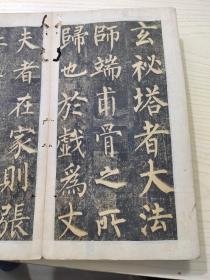 玄祕塔者大法
師端甫骨之所
歸也於戲為丈
夫者在家則張